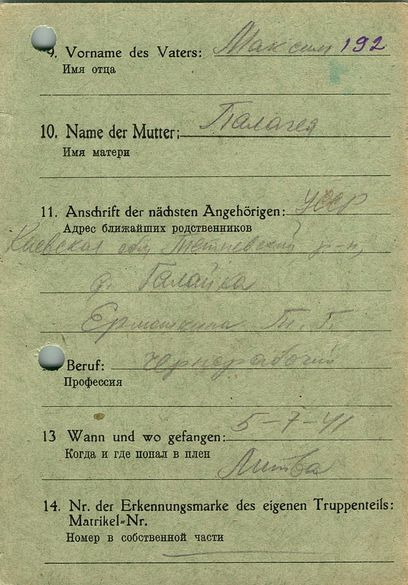 9. Vorname des Vaters: Максим 192
Имя отца
10. Name der Mutter: Палагея
Имя матери
11. Anschrift der nächsten Angehörigen: УССР
Адрес ближайших родственников
Киевская обл р-н,
д. Галайка
Т. Г.
Beruf: чернорабочий
Профессия
13 Wann und wo gefangen: 5-7-41
Когда и где попал в плен
Литва
14. Nr. der Erkennungsmarke des eigenen Truppenteils:
Matrikel-Nr.
Номер в собственной части